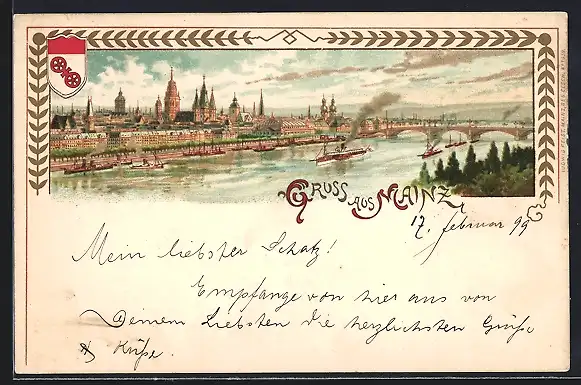 GRUSS AUS MAINZ
17. februar 99
Mein liebster Schatz!
Empfange von hier aus von
Deinem Liebsten die herzlichsten Grüße
Küße.